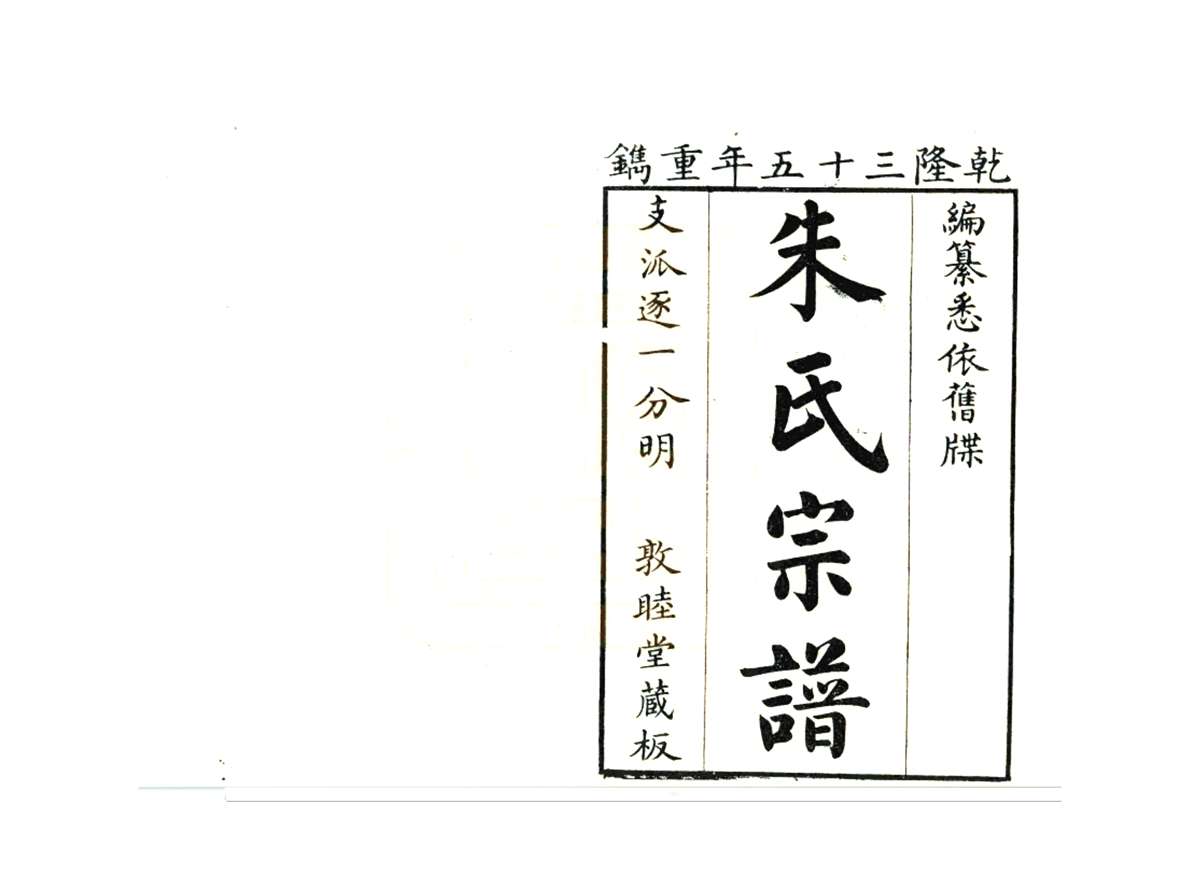 乾隆三十五年重鐫
編纂悉依舊牒
朱氏宗譜
支派逐一分明 敦睦堂蔵板